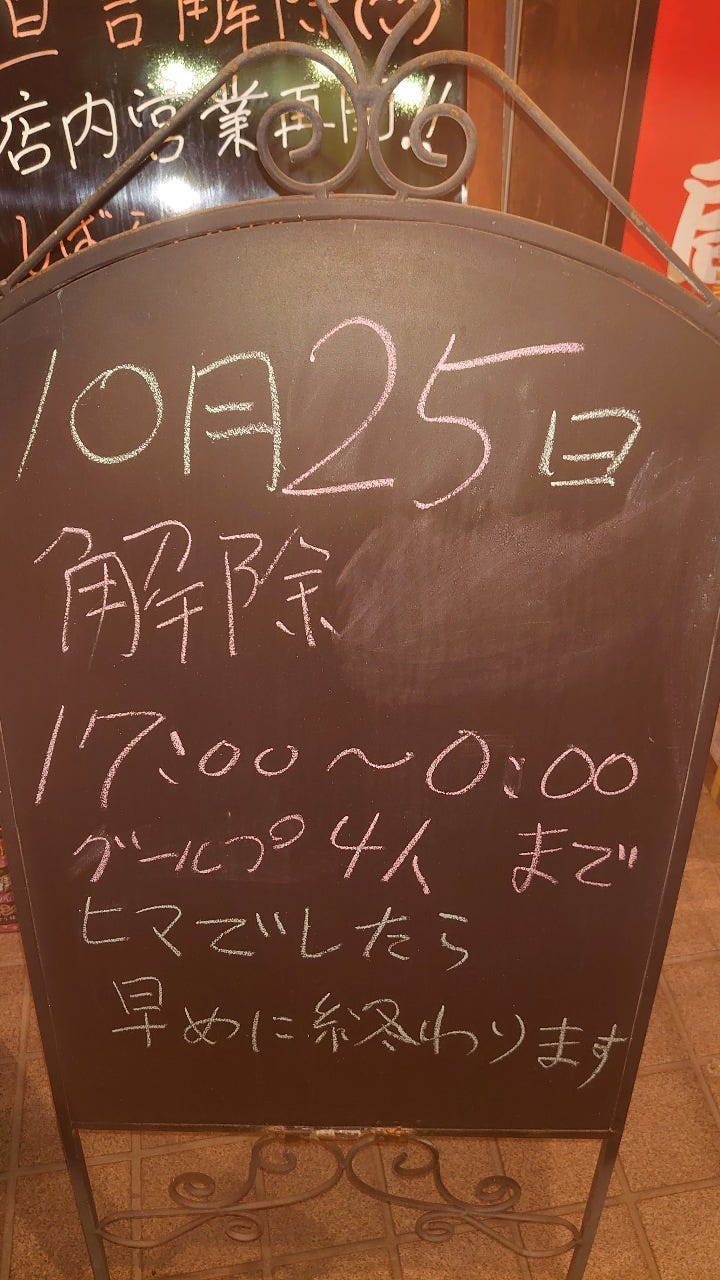 宣言解除
店内営業再開!!
しばら
10月25日
解除
17:00〜0:00
グールプ4人 まで
ヒマでしたら
早めに終わります